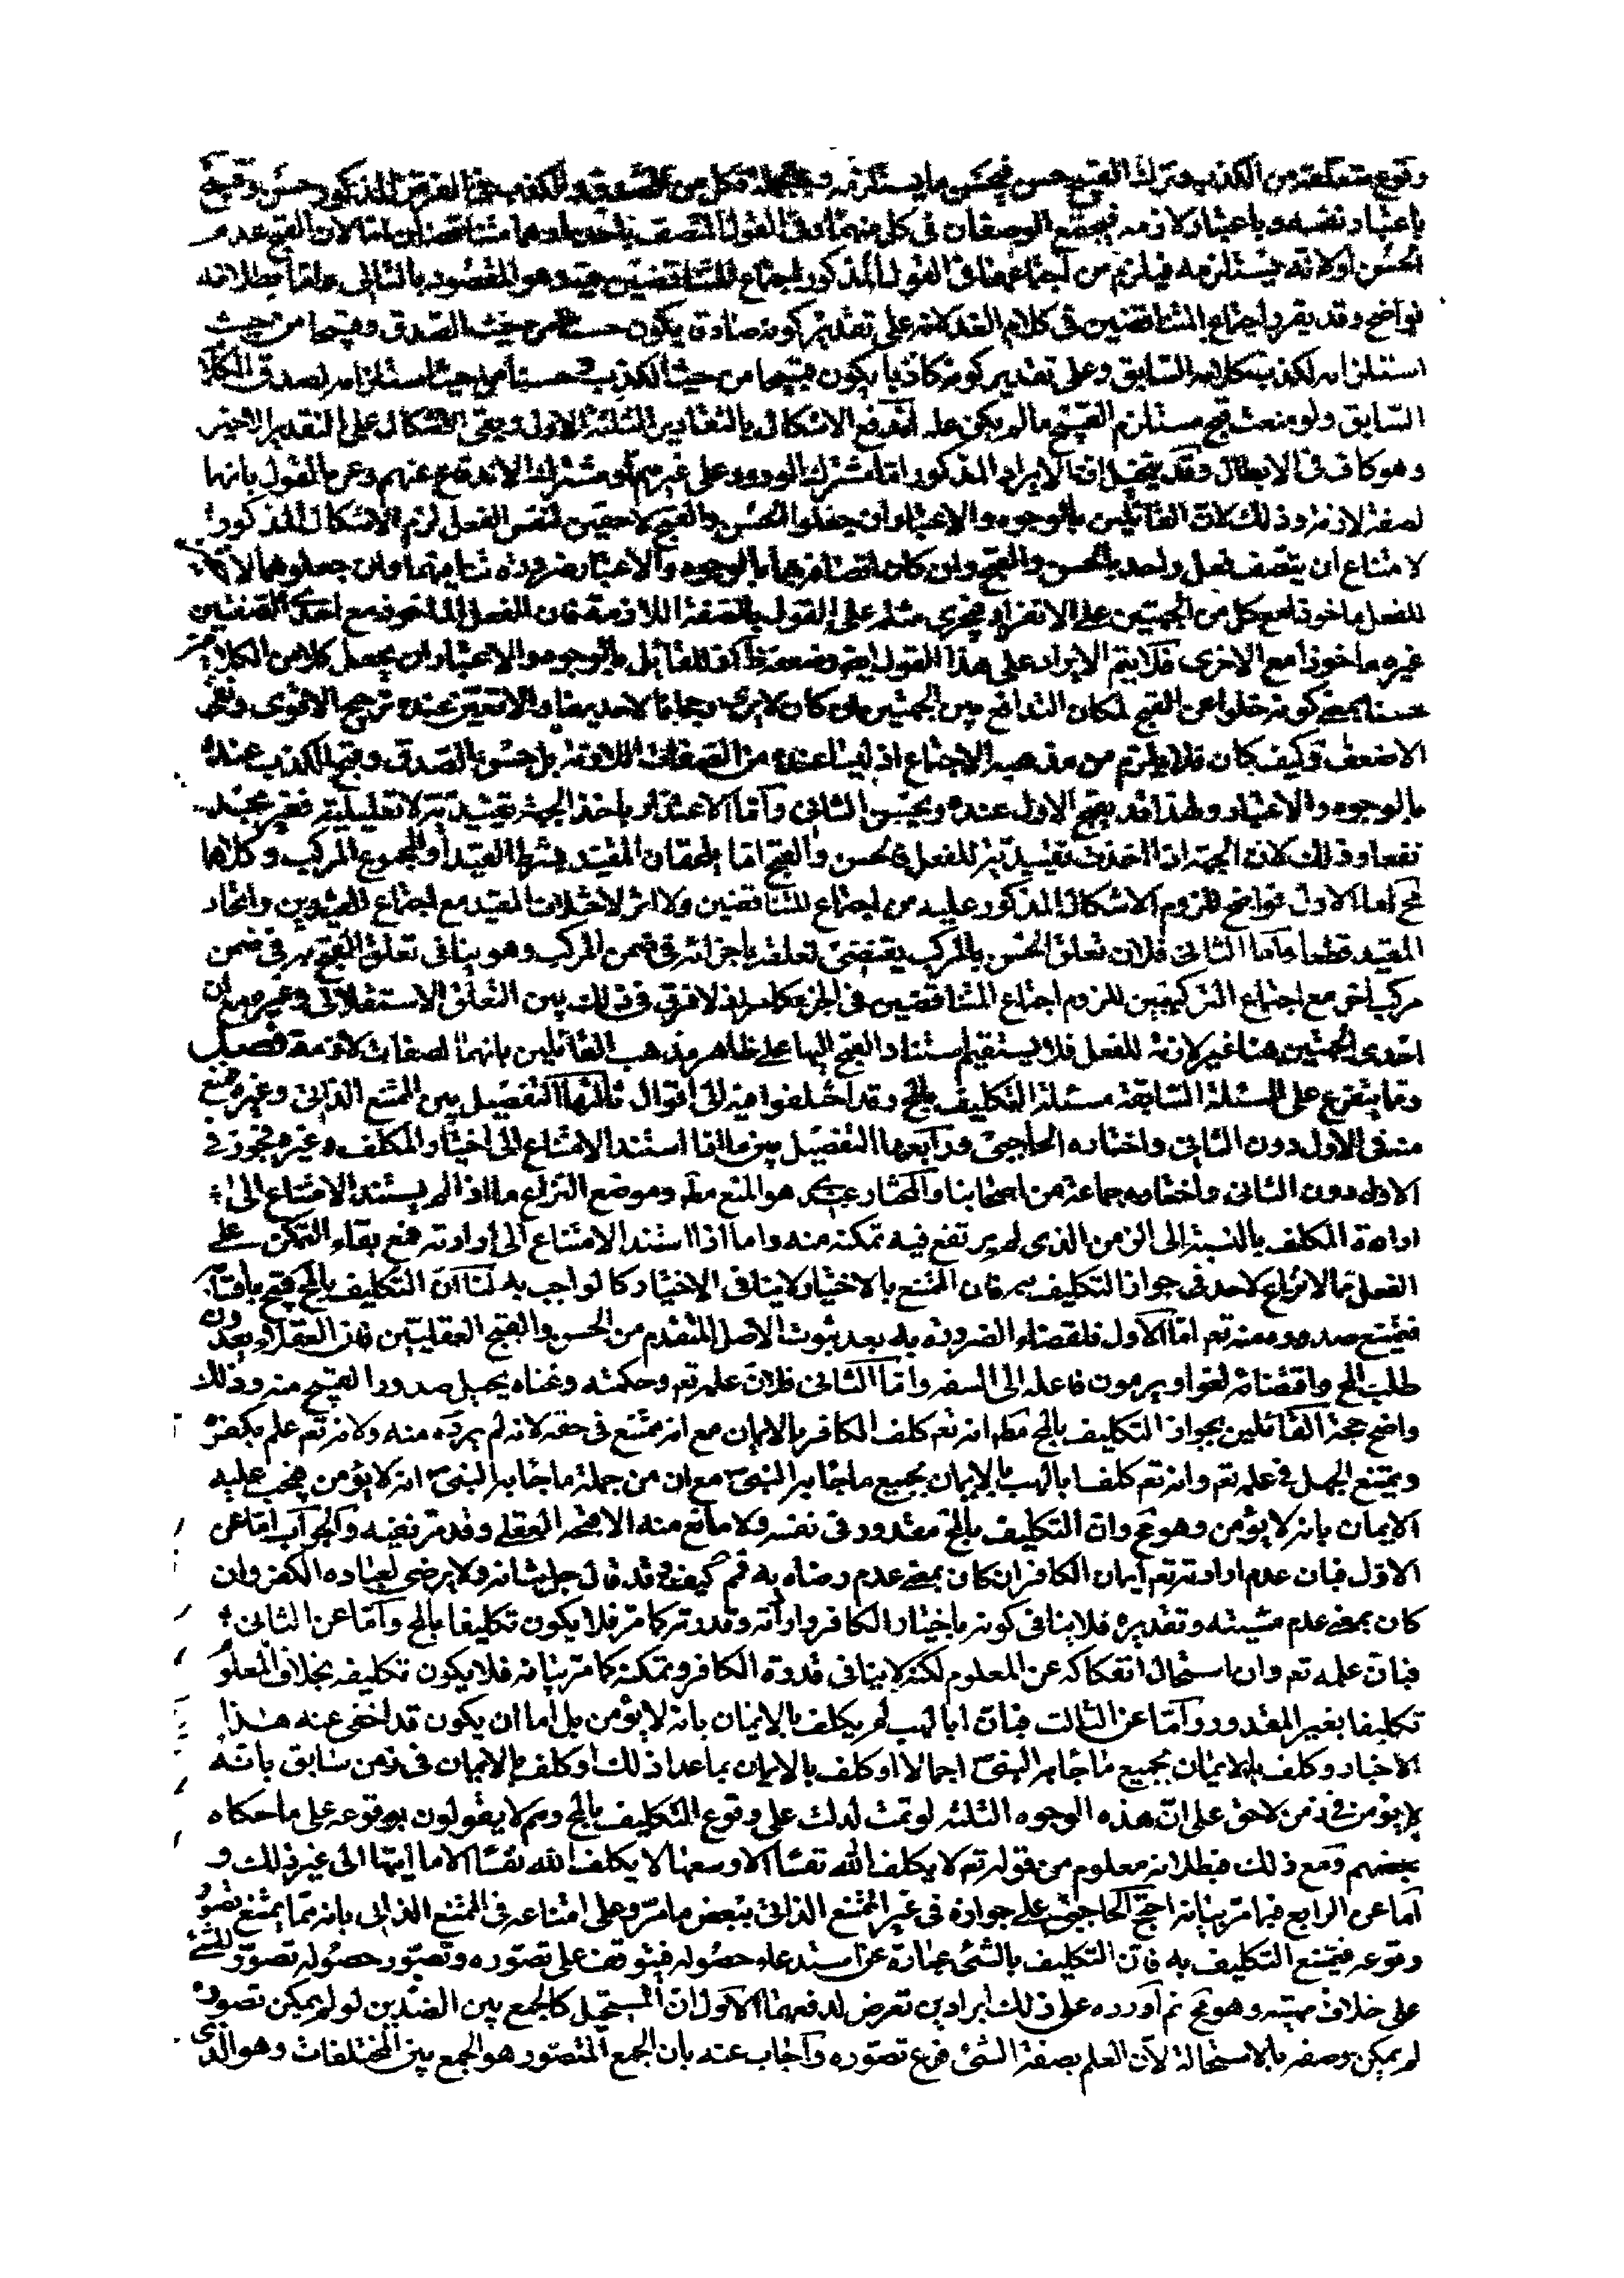 وقوع متعلقه من الكذب وترك القبيح حسن فيحسن ما يستلزمه وبالجملة فكل من الصدق والكذب في الفرض المذكور حسن وقبيح
باعتبار نفسه وباعتبار لازمه فيجتمع الوصفان في كل منهما وفي القول المتصف باحدهما وهما متناقضان اما لان القبح عدم
الحسن او لانه يستلزمه فيلزم من اجتماعهما في القول المذكور اجتماع المتناقضين فيه وهو المقصود بالتالى واما بطلانه
فواضح وقد يقرر اجتماع المتناقضين في كلام الغد لانه على تقدير كونه صادقا يكون حسنا من حيث الصدق وقبيحا من حيث
استلزامه لكذب كلامه السابق وعلى تقدير كونه كاذبا يكون قبيحا من حيث الكذب وحسنا من حيث استلزامه لصدق الكلام
السابق ولو منعت قبح مستلزم القبيح ما لم يكن علة اندفع الاشكال بالتقادير الثلثة الاول وبقى الاشكال على التقدير الاخير
وهو كاف في الابطال وقد يتخيل ان الايراد المذكور اما مشترك الورود على غيرهم او مشترك الاندفاع عنهم وعن القول بانها
لصفة لازمة وذلك لان القائلين بالوجوه والاعتبار ان جعلوا الحسن والقبح لاحقين لنفس الفعل لزم الاشكال المذكور
لامتناع ان يتصف فعل واحد بالحسن والقبح وان كان اتصافه بهما بالوجوه والاعتبار ضرورة تنافيهما وان جعلوهما لاحقين
للفعل ماخوذا مع كل من الجهتين على الانفراد فيجرى مثله على القول بالصفة اللازمة فان الفعل الماخوذ مع احدى الصفتين
غيره ماخوذا مع الاخرى فلا يتم الايراد على هذا القول ايضا وضعفه ظ اذ للقائل بالوجوه والاعتبار ان يجعل كلا من الكلامين
حسنا بمعنى كونه خلوا عن القبح لمكان التدافع بين الجهتين وان كان لابد وجهانا لاحديهما والا تعين عنده ترجيح الاقوى ونفى
الاضعف وكيف كان فلا يلزم من مذهبه الاجتماع اذ ليسا عنده من الصفات اللازمة بل حسن الصدق وقبح الكذب عنده
بالوجوه والاعتبار ولهذا قد يقبح الاول عنده ويحسن الثاني واما الاعتذار باخذ الجهة تقييدية لا تعليلية فغير مجد
نفعا وذلك لان الجهة اذا اخذت تقييدية للفعل فالحسن والقبح اما يلحقان المقيد بشرط القيد او المجموع المركب وكلاهما
مح اما الاول فواضح للزوم الاشكال المذكور عليه من اجتماع المتناقضين ولا اثر لاختلاف المقيد مع اجتماع القيدين واتحاد
المقيد قطعا واما الثاني فلان تعلق الحسن بالمركب يقتضى تعلقه باجزائه في ضمن المركب وهو ينافى تعلق القبح بهر في ضمن
مركب اخر مع اجتماع التركيبين للزوم اجتماع المتناقضين في الجزء كما مر اذ لا فرق في ذلك بين التعلق الاستقلالى وغيره مع ان
احدى الجهتين هنا غير لازمة للفعل فلا يستقيم استناد القبح اليها على ظاهر مذهب القائلين بانهما لصفات لازمة فصل
ومما يتفرع على المسئلة السابقة مسئلة التكليف بالمح وقد اختلفوا فيه الى اقوال ثالثها التفصيل بين الممتنع الذاتى وغيره فمنع
منه في الاول دون الثاني واختاره الحاجبى ورابعها التفصيل بين ما اذا استند الامتناع الى اختيار المكلف وغيره فجوز في
الاول دون الثاني واختاره جماعة من اصحابنا والمختار عندى هو المنع مطلقا وموضع النزاع ما اذا لم يستند الامتناع الى
ارادة المكلف بالنسبة الى الزمن الذى لم يرتفع فيه تمكنه منه واما اذا استند الامتناع الى ارادته فمع بقاء التمكن على
الفعل مما لا نزاع لاحد في جواز التكليف به فان الممتنع بالاختيار لا ينافى الاختيار كالواجب به لنا ان التكليف بالمح قبيح باقسامه
فيمتنع صدوره منه تع اما الاول فلقضاء الضرورة به بعد ثبوت الاصل المتقدم من الحسن والقبح العقليين فان العقلاء يعدون
طلب المح واقتضائه لغوا ويرمون فاعله الى السفه واما الثاني فلان علمه تع وحكمته وغناه يحيل صدور القبيح منه وذلك
واضح حجة القائلين بجواز التكليف بالمح مطلقا انه تع كلف الكافر بالايمان مع انه ممتنع في حقه لانه لم يرده منه ولانه تع علم بكفره
ويمتنع الجهل في علمه تع وانه تع كلف ابا لهب بالايمان بجميع ما جاء به النبىّ مع ان من جملة ما جاء به النبىّ انه لا يؤمن فيجب عليه
الايمان بانه لا يؤمن وهو مح وان التكليف بالمح مقدور في نفسه ولا مانع منه الا القبح العقلى وقد مر نفيه والجواب اما عن
الاول فبان عدم ارادته تع ايمان الكافر ان كان بمعنى عدم رضاه به فمم كيف وقد قال جل شانه ولا يرضى لعباده الكفر وان
كان بمعنى عدم مشيته وتقديره فلا ينافى كونه باختيار الكافر وارادته وقدرته كما مر فلا يكون تكليفا بالمح واما عن الثاني
فبان علمه تع وان استحال انفكاكه عن المعلوم لكنه لا ينافى قدرة الكافر وتمكنه كما مر بيانه فلا يكون تكليفه بخلاف المعلوم
تكليفا بغير المقدور واما عن الثالث فبان ابا لهب لم يكلف بالايمان بانه لا يؤمن بل اما ان يكون قد اخفى عنه هذا
الاخبار وكلف بالايمان بجميع ما جاء به النبىّ اجمالا او كلف بالايمان بما عدا ذلك او كلف بالايمان في زمن سابق بانه
لا يؤمن في زمن لاحق على ان هذه الوجوه الثلثة لو تمت لدلت على وقوع التكليف بالمح وهم لا يقولون بوقوعه على ما حكاه
بعضهم ومع ذلك فبطلانه معلوم من قوله تع لا يكلف الله نفسا الا وسعها لا يكلف الله نفسا الا ما اتيها الى غير ذلك و
اما عن الرابع فبما مر بيانه احتج الحاجبى على جوازه في غير الممتنع الذاتى ببعض ما مر وعلى امتناعه في الممتنع الذاتى بانه مما يمتنع تصور
وقوعه فيمتنع التكليف به فان التكليف بالشئ عبارة عن استدعاء حصوله فيتوقف على تصوره وتصور حصوله تصور للشئ
على خلاف مهيته وهو مح ثم اورده على ذلك ايرادين تعرض لدفعهما الاول ان المستحيل كالجمع بين الضدين لو لم يمكن تصوره
لم يمكن وصفه بالاستحالة لان العلم بصفة الشئ فرع تصوره واجاب عنه بان الجمع المتصور هو الجمع بين المختلفات وهو الذى